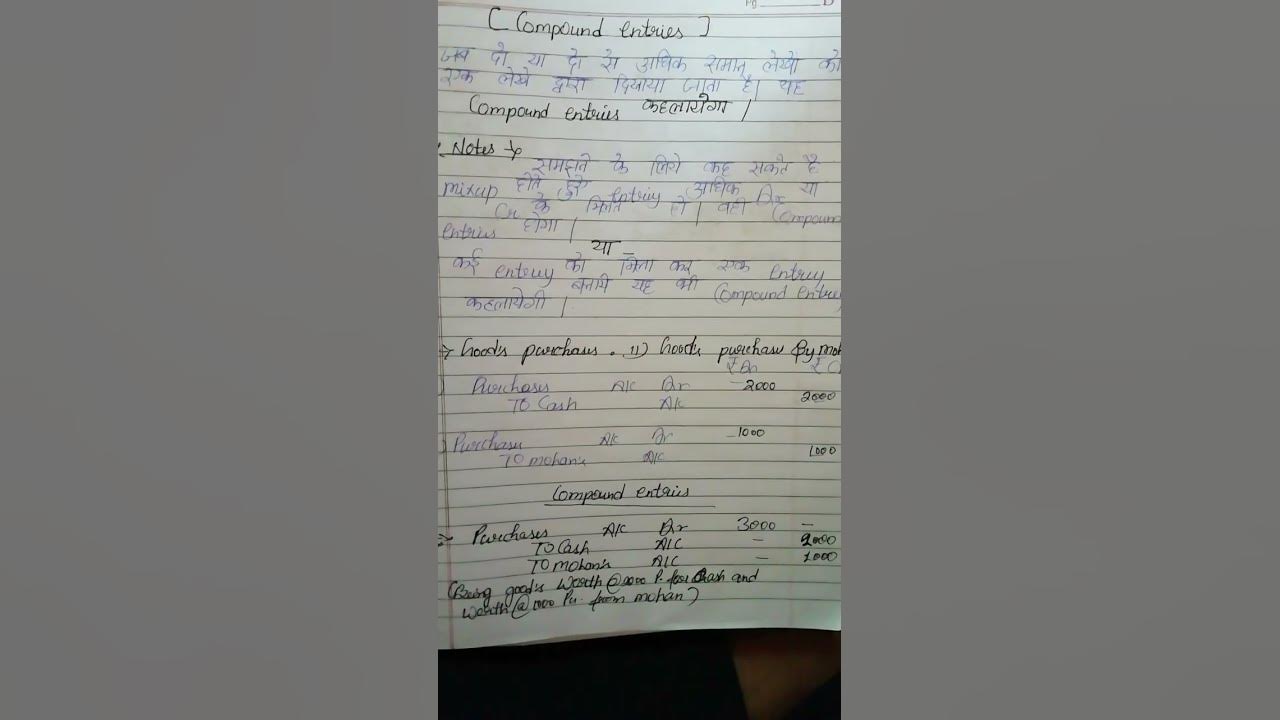 [Compound entries]
जब दो या दो से अधिक समान लेखो को
एक लेखे द्वारा दिखाया जाता है। यह
Compound entries कहलायेगा।
Notes →
समझने के लिये कह सकते है
mixup होते हुए entry अधिक Dr या
Cr के मिलते हो। वही Compoun
entries होगा।
या -
कई entry को मिला कर एक entry
बनाये यह भी Compound entry
कहलायेगी।
→ Goods purchases. II) Goods purchase By moh
₹ Dr ₹ C
Purchases A/C Dr - 2000
To Cash A/C 2000
Purchases A/C Dr - 1000
To mohan's A/C 1000
Compound entries
Purchases A/C Dr 3000 -
To Cash A/C - 2000
To mohan's A/C - 1000
(Being goods worth @ 2000 P. for Cash and
worth @ 1000 Pu. from mohan)